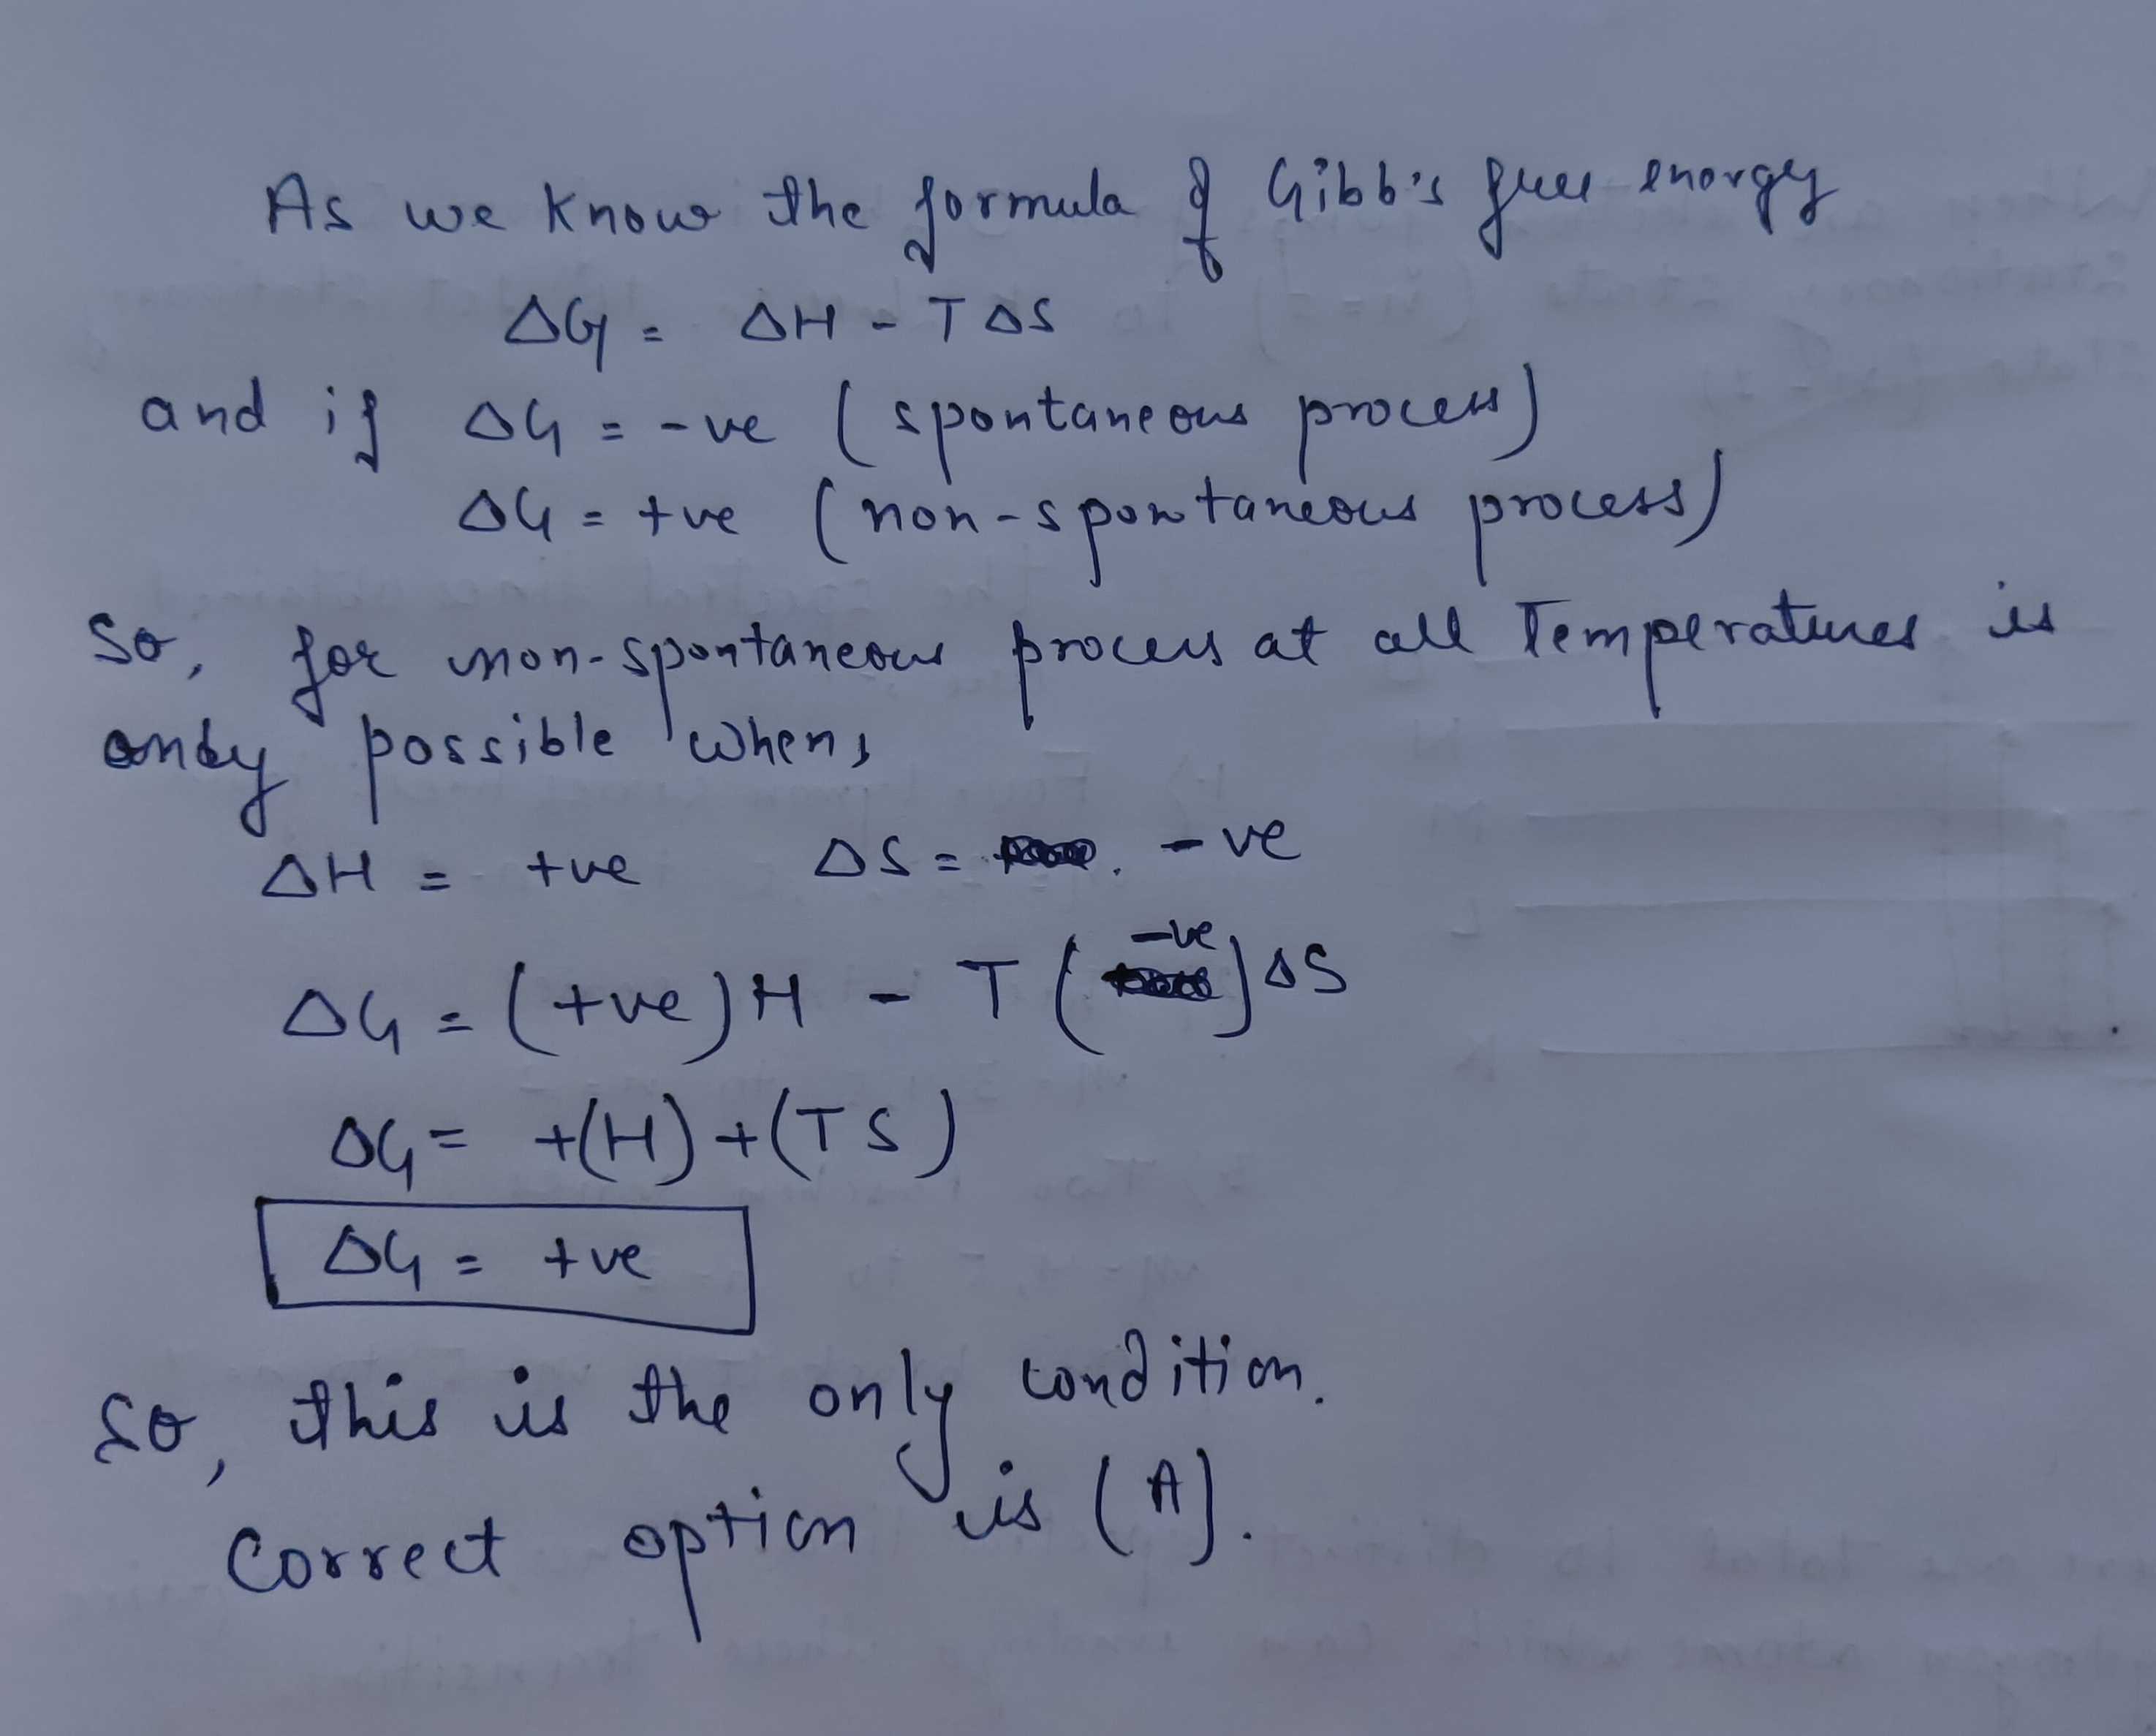 As we know the formula of Gibb's free energy
ΔG = ΔH - TΔS
and if ΔG = -ve (spontaneous process)
ΔG = +ve (non-spontaneous process)
So, for non-spontaneous process at all Temperatures is
only possible when,
ΔH = +ve ΔS = -ve
ΔG = (+ve)H - T(-ve)ΔS
ΔG = +(H)+(TS)
ΔG = +ve
So, this is the only condition.
Correct option is (A).